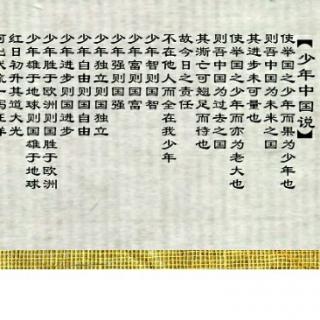 【少年中国说】
使举国之少年而果为少年也
则吾中国为未来之国
其进步未可量也
使举国之少年而亦为老大也
则吾中国为过去之国
其渐亡可翘足而待也
故今日之责任
不在他人而全在我少年
少年智则国智
少年富则国富
少年强则国强
少年独立则国独立
少年自由则国自由
少年进步则国进步
少年胜于欧洲则国胜于欧洲
少年雄于地球则国雄于地球
红日初升其道大光